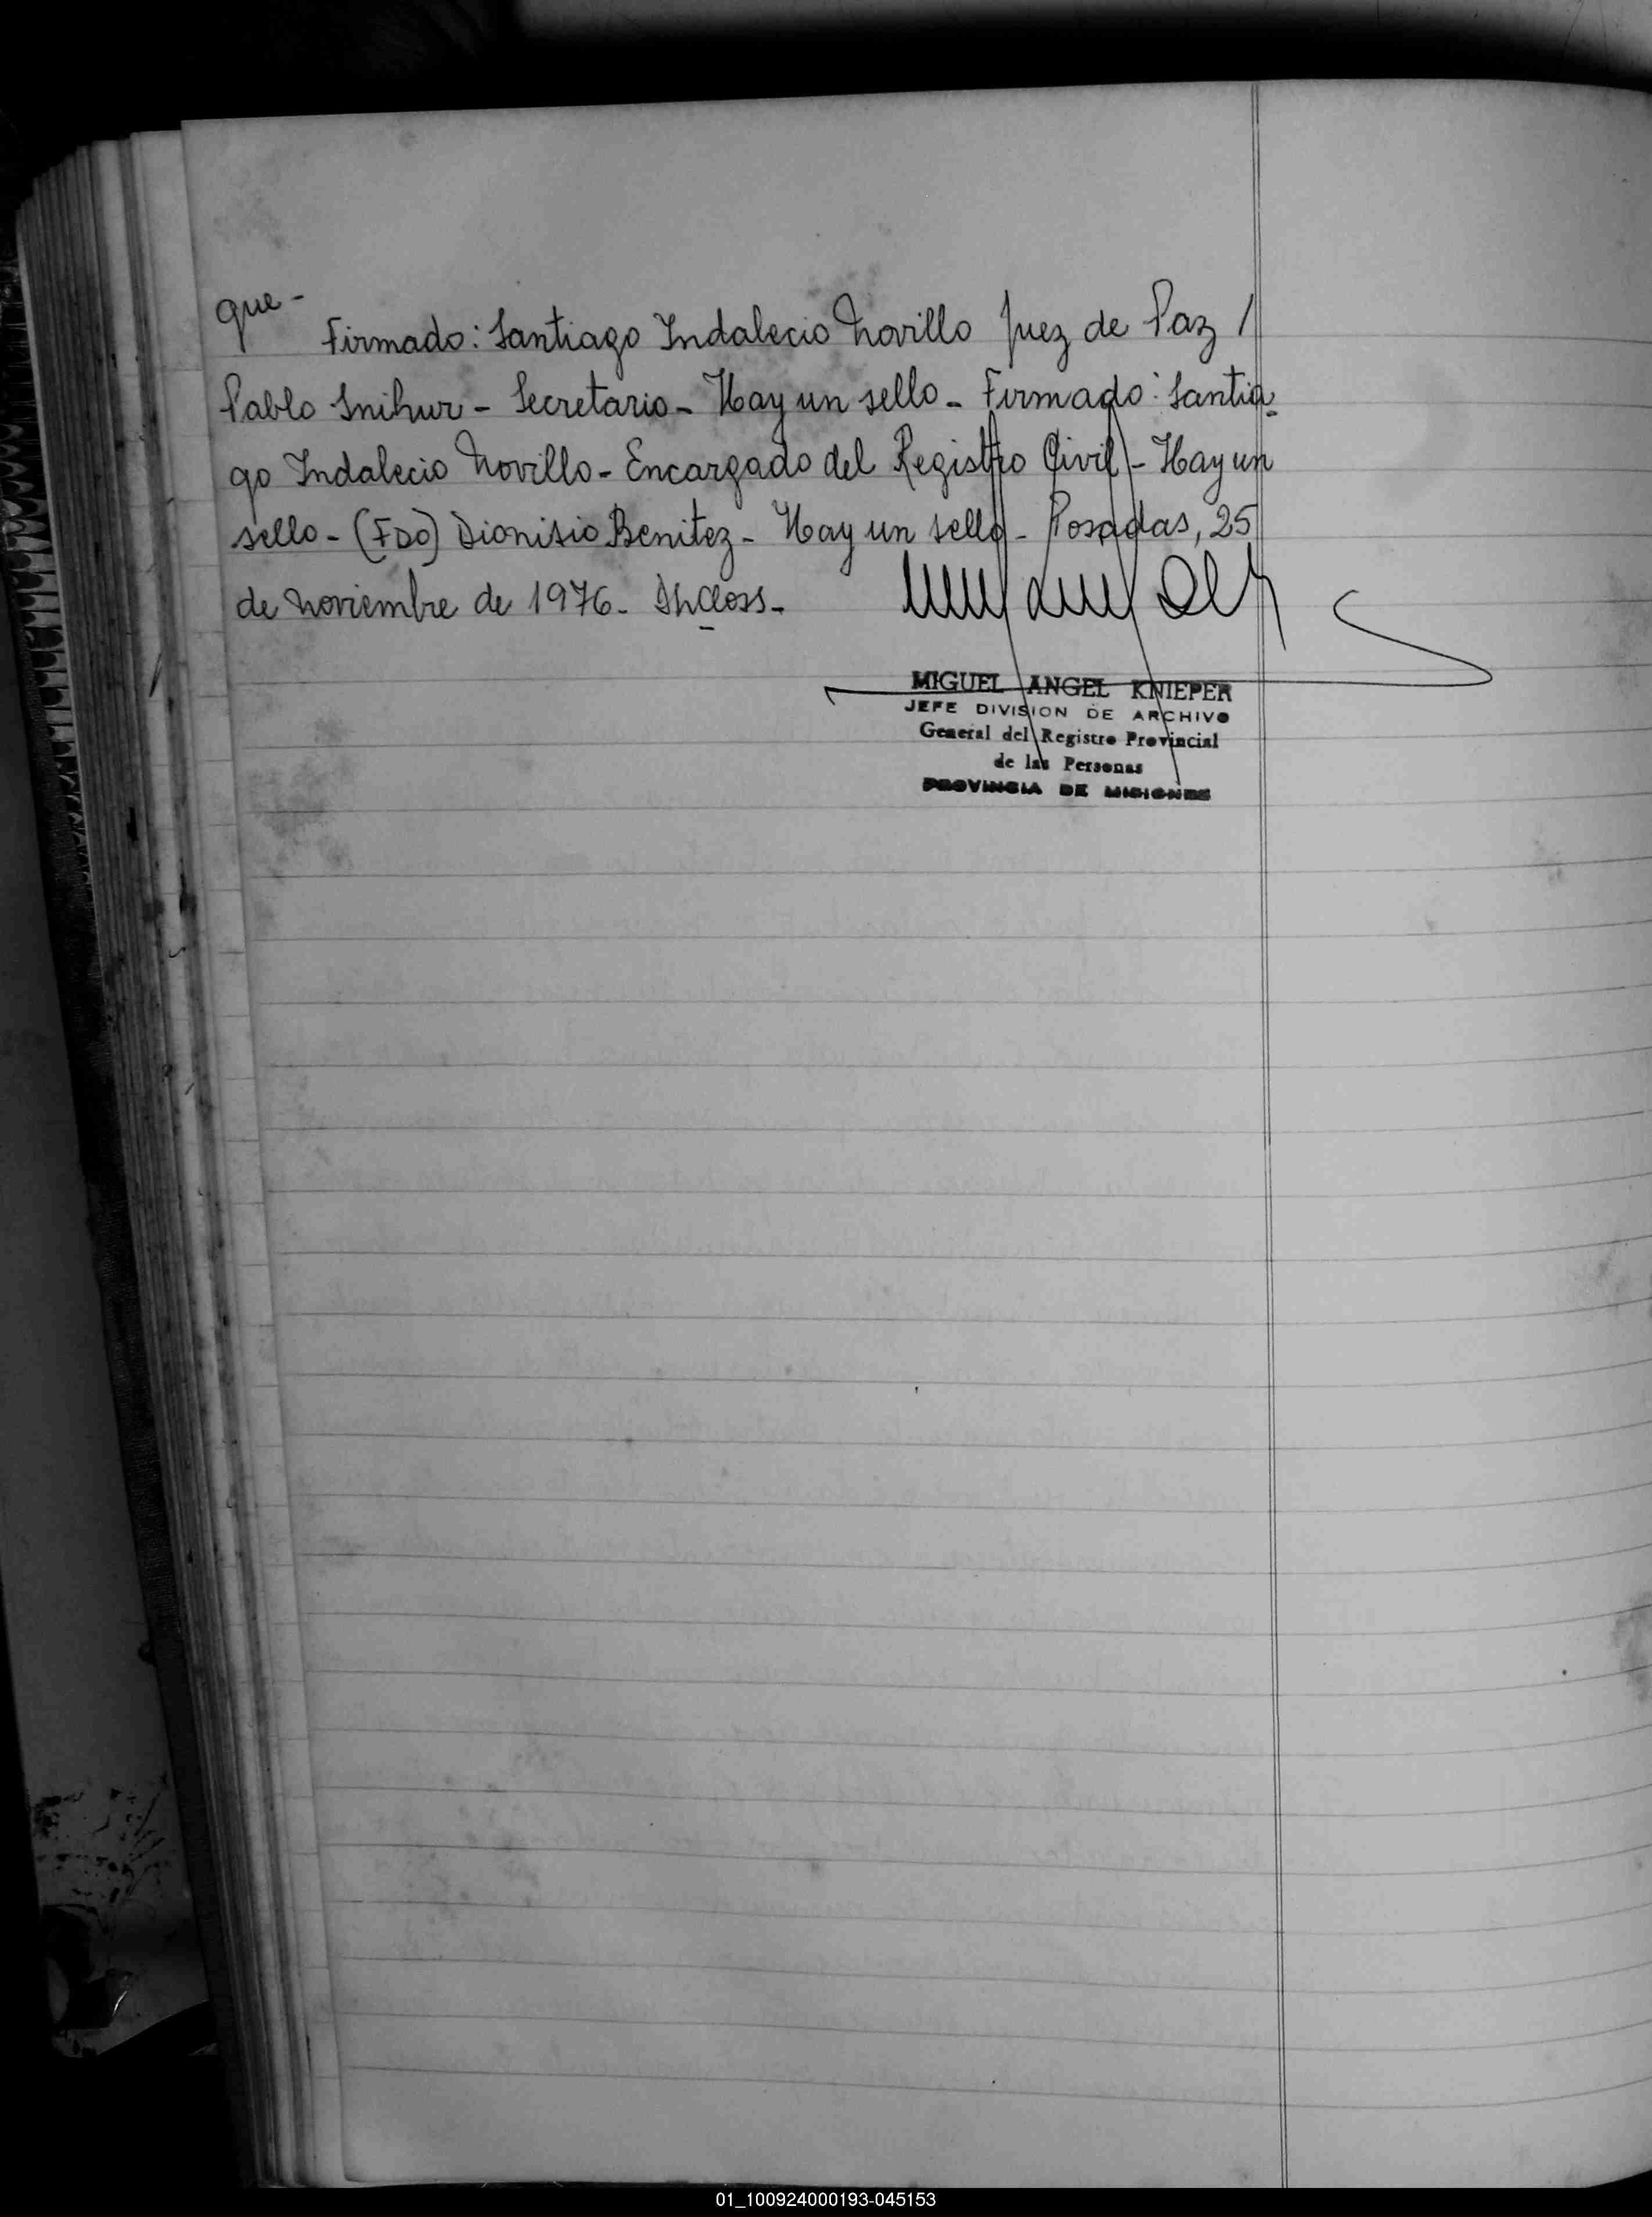 que-
Firmado: Santiago Indalecio Novillo Juez de Paz /
Pablo Snihur - Secretario - Hay un sello - Firmado: Santia-
go Indalecio Novillo - Encargado del Registro Civil - Hay un
sello - (FDO) Dionisio Benitez - Hay un sello - Posadas, 25
de Noviembre de 1976 -
MIGUEL ANGEL KNIEPER
JEFE DIVISION DE ARCHIVO
General del Registro Provincial
de las Personas
PROVINCIA DE MISIONES
01_100924000193-045153